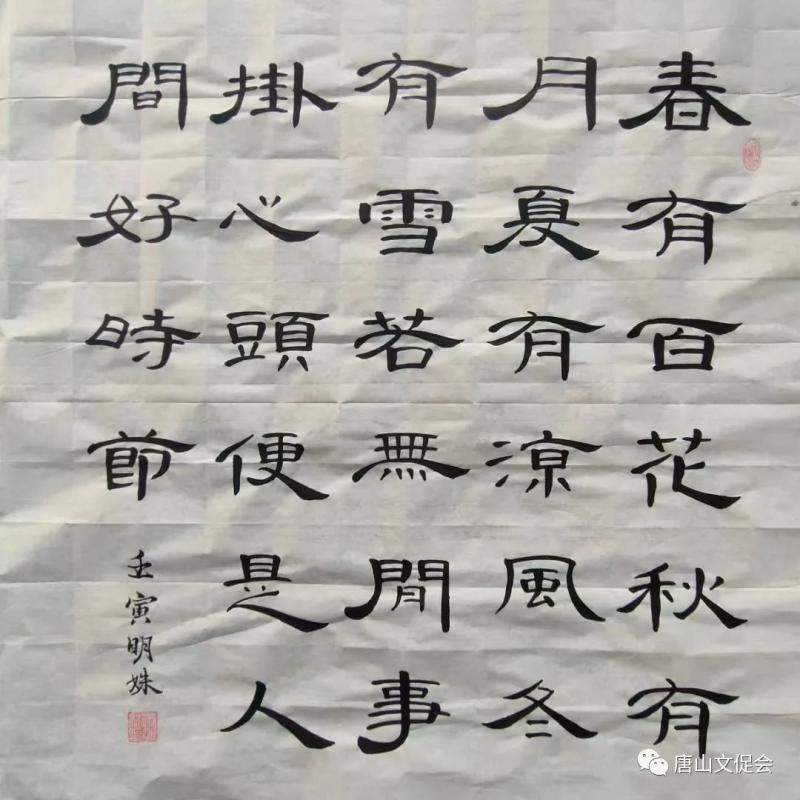 春有百花秋有
月夏有涼風冬
有雪若無閒事
掛心頭便是人
間好時節
壬寅明姝
唐山文促会